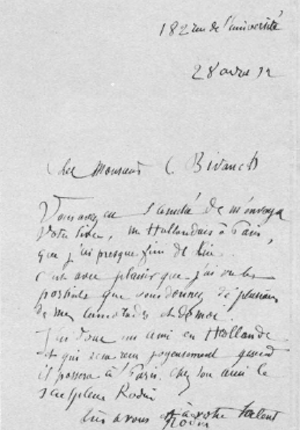 182 rue de l'université
28 avril 92
Cher Monsieur C. Bivanck
Vous avez eu l'amitié de m'envoyer
votre livre, un Hollandais à Paris,
que j'ai presque fini de lire.
C'est avec plaisir que j'ai vu les
portraits que vous donnez de plusieurs
de mes camarades et de moi.
J'ai donc un ami en Hollande
et qui sera reçu joyeusement quand
il passera à Paris, chez son ami le
sculpteur Rodin
à vous à votre talent
Rodin